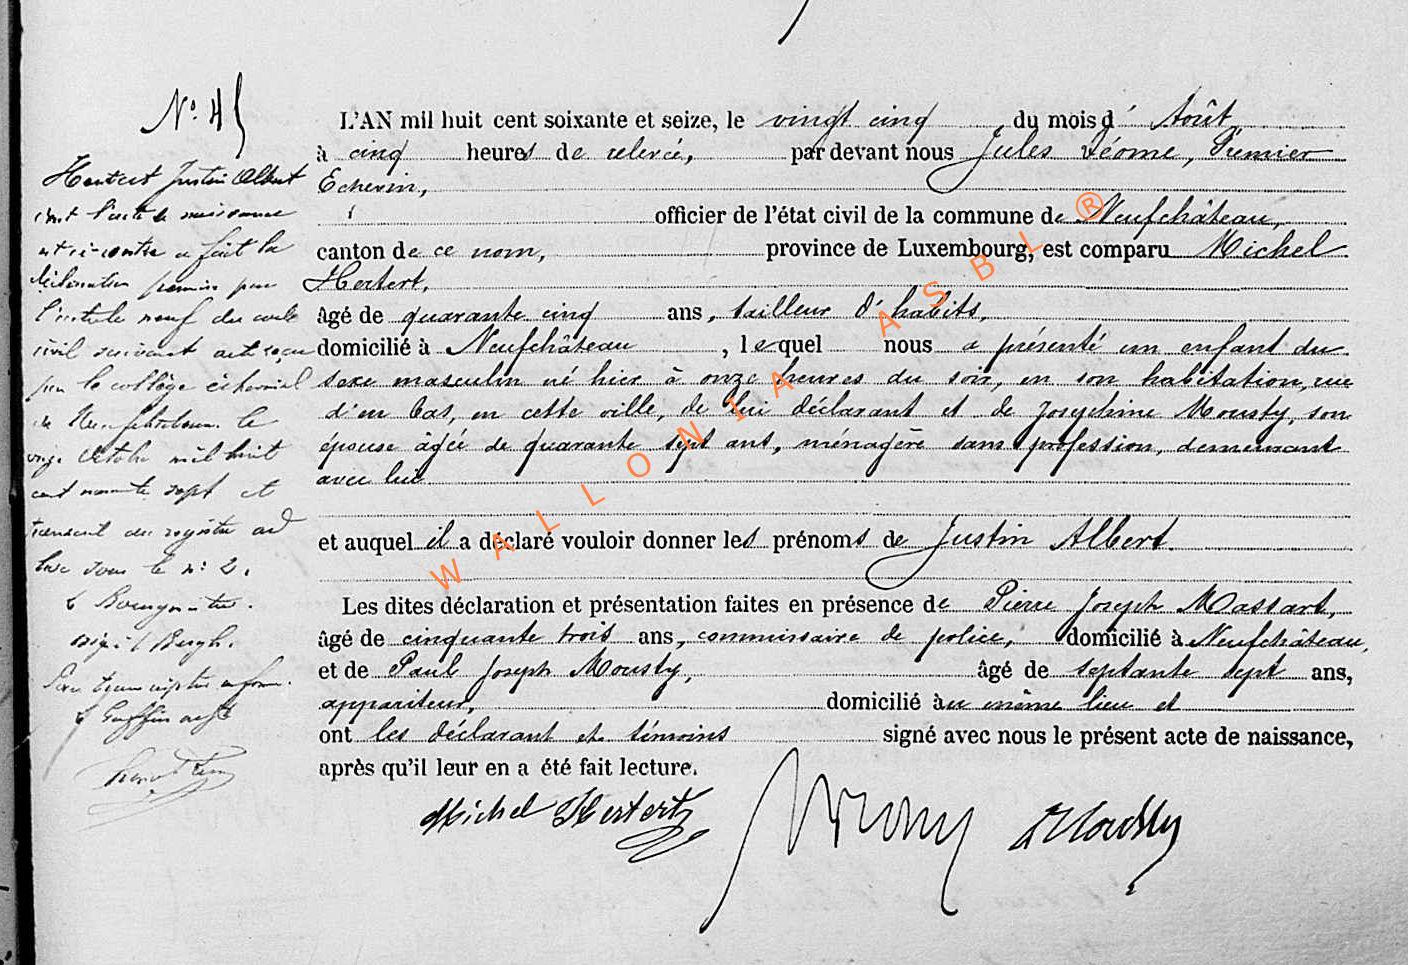 N° 45
Hertert Justin Albert
dont l'acte de naissance
est ci-contre a fait la
déclaration permise par
l'article neuf du code
civil suivant acte reçu
par le collège échevinal
de Neufchâteau le
onze Octobre mil huit
cent nonante sept et
transcrit au registre ad
hoc sous le n: 2.
Pour transcription conforme.
L'AN mil huit cent soixante et seize, le vingt cinq du mois d' Août
à cinq heures de relevée, par devant nous Jules Léome, Premier
Echevin,
officier de l'état civil de la commune de Neufchâteau,
canton de ce nom, province de Luxembourg, est comparu Michel
Hertert,
âgé de quarante cinq ans, tailleur d'habits,
domicilié à Neufchâteau, lequel nous a présenté un enfant du
sexe masculin né hier à onze heures du soir, en son habitation, rue
d'en bas, en cette ville, de lui déclarant et de Joséphine Mousty, son
épouse âgée de quarante sept ans, ménagère sans profession, demeurant
avec lui
et auquel il a déclaré vouloir donner les prénoms de Justin Albert.
Les dites déclaration et présentation faites en présence de Pierre Joseph Massart,
âgé de cinquante trois ans, commissaire de police, domicilié à Neufchâteau,
et de Paul Joseph Mousty, âgé de septante sept ans,
appariteur, domicilié au même lieu et
ont les déclarant et témoins signé avec nous le présent acte de naissance,
après qu'il leur en a été fait lecture.
Michel Hertert
Mousty
WALLONIA ASBL ®